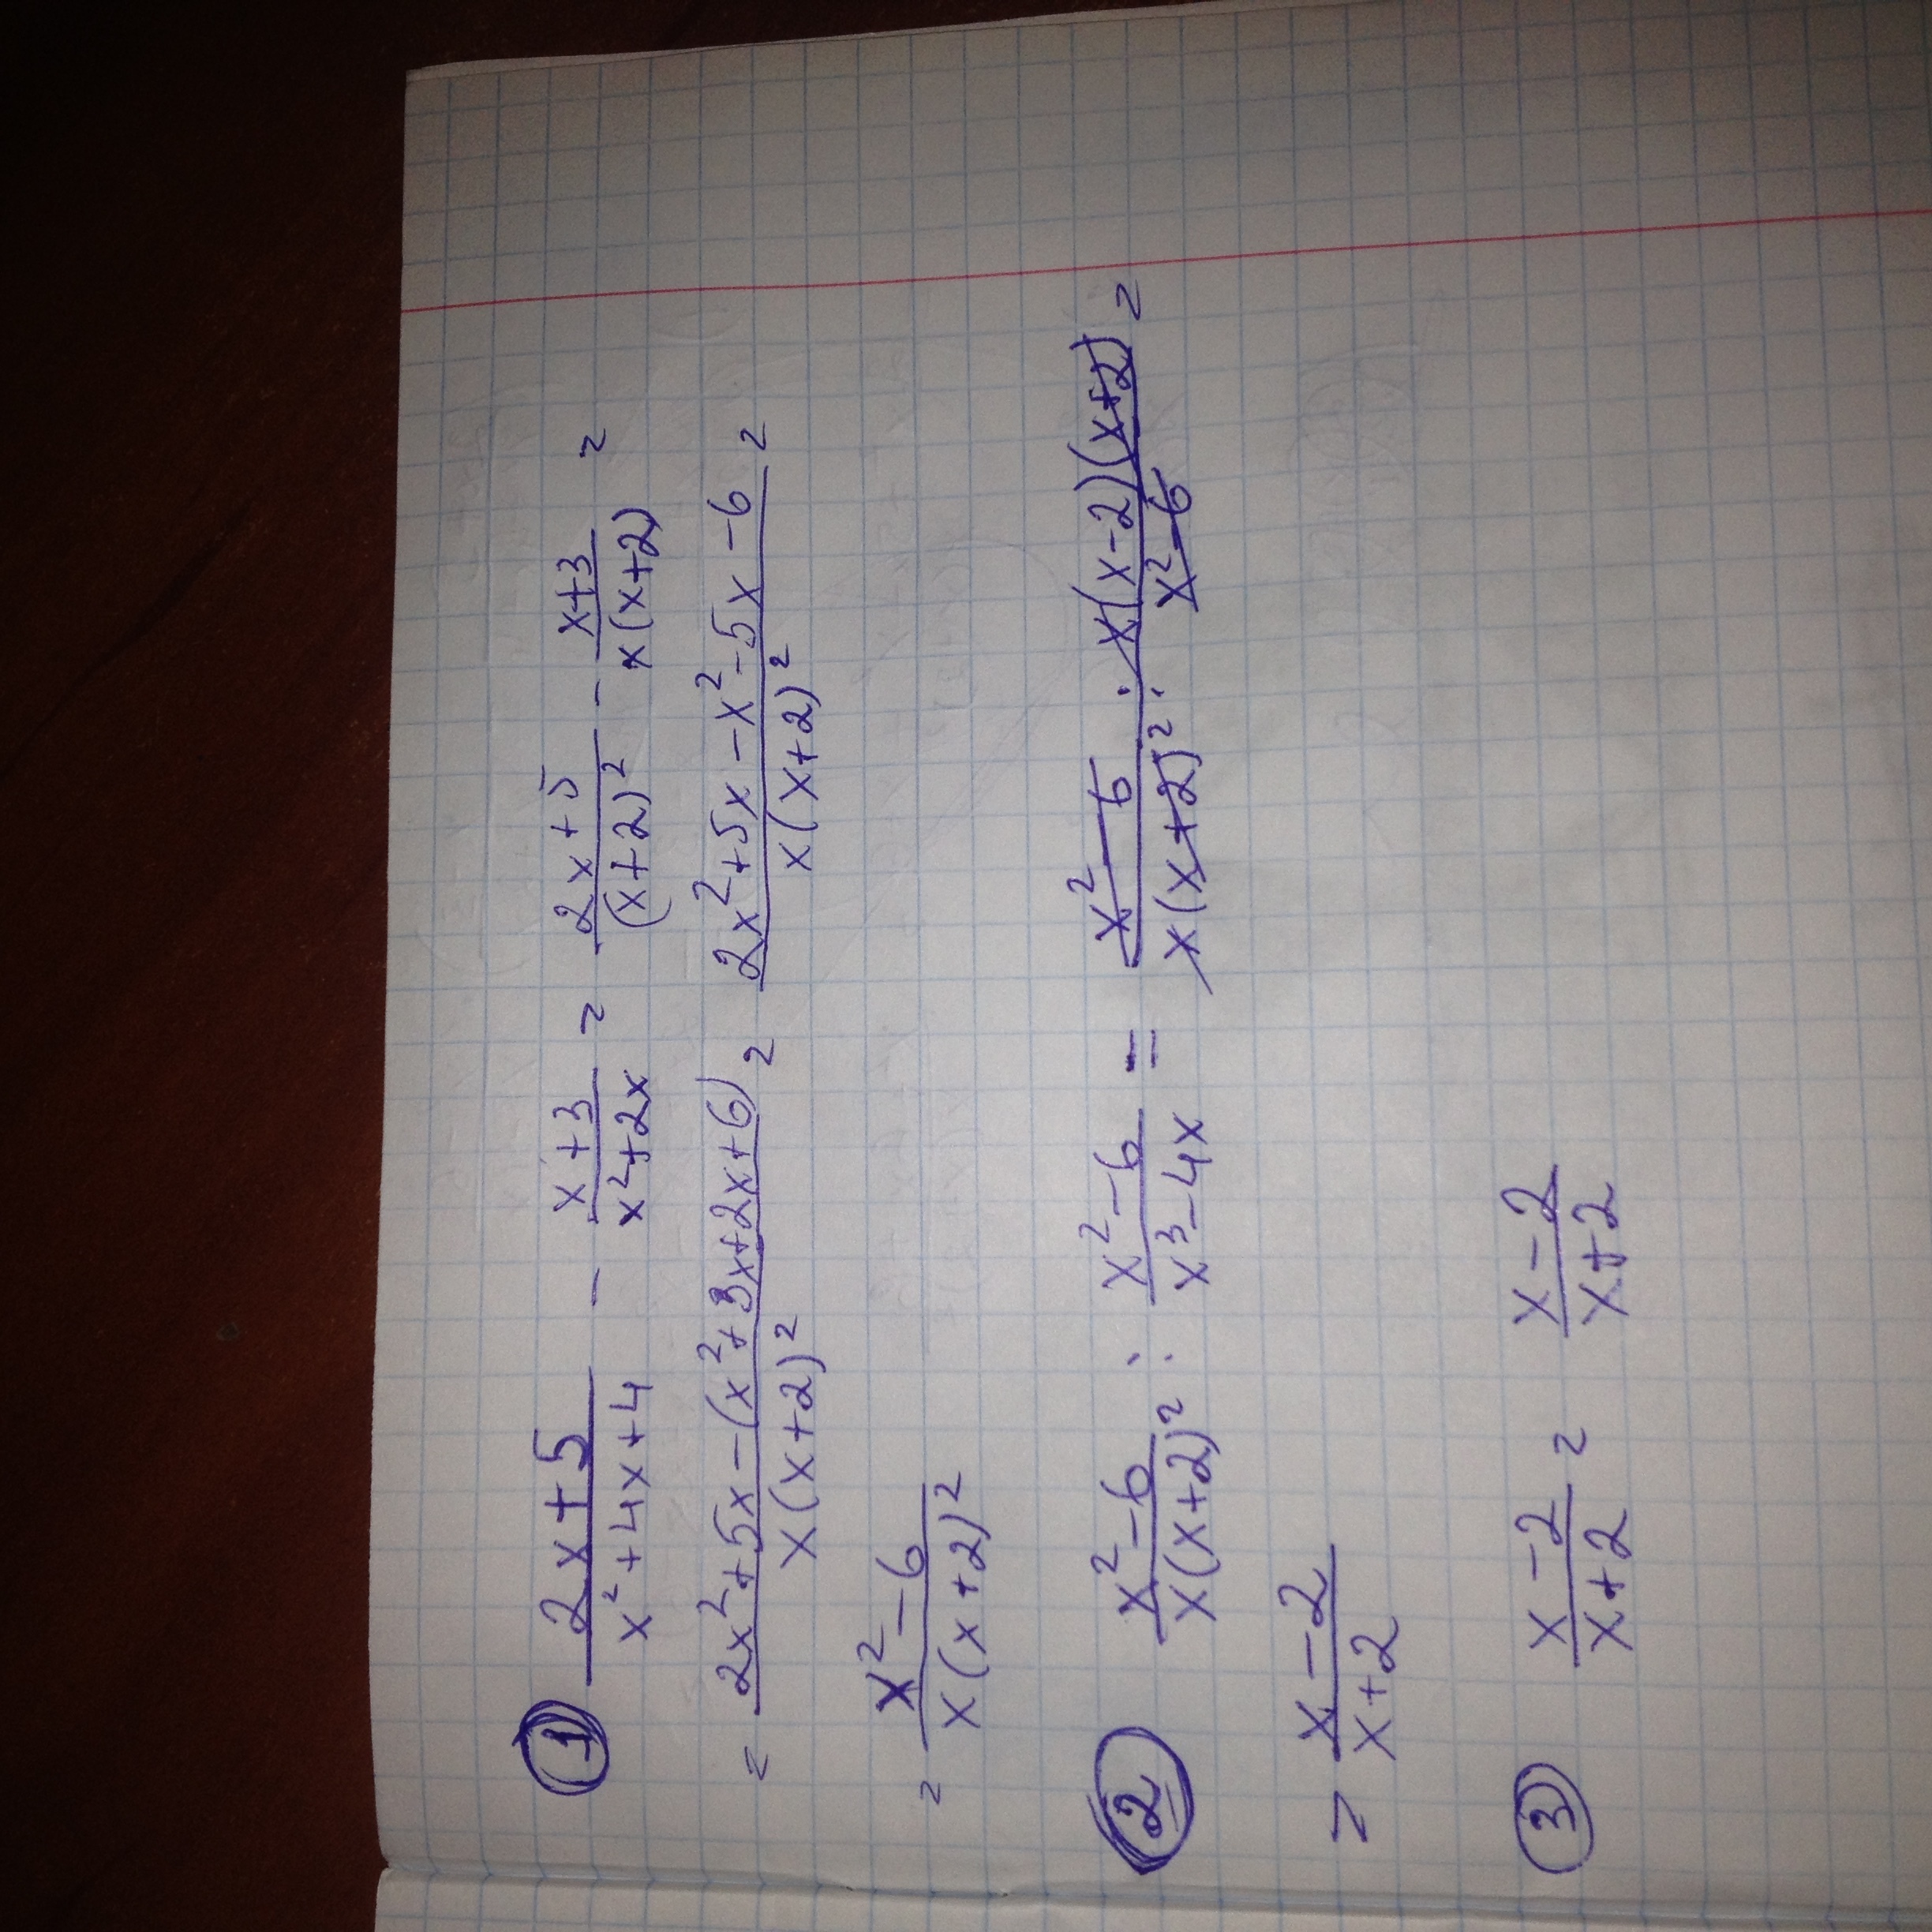 ① (2x+5)/(x²+4x+4) − (x+3)/(x²+2x) = (2x+5)/(x+2)² − (x+3)/(x(x+2)) =
= (2x²+5x−(x²+3x+2x+6))/(x(x+2)²) = (2x²+5x−x²−5x−6)/(x(x+2)²) =
= (x²−6)/(x(x+2)²)
② (x²−6)/(x(x+2)²) : (x²−6)/(x³−4x) = (x²−6)/(x(x+2)²) : (x(x−2)(x+2))/(x²−6) =
= (x−2)/(x+2)
③ (x−2)/(x+2) = (x−2)/(x+2)